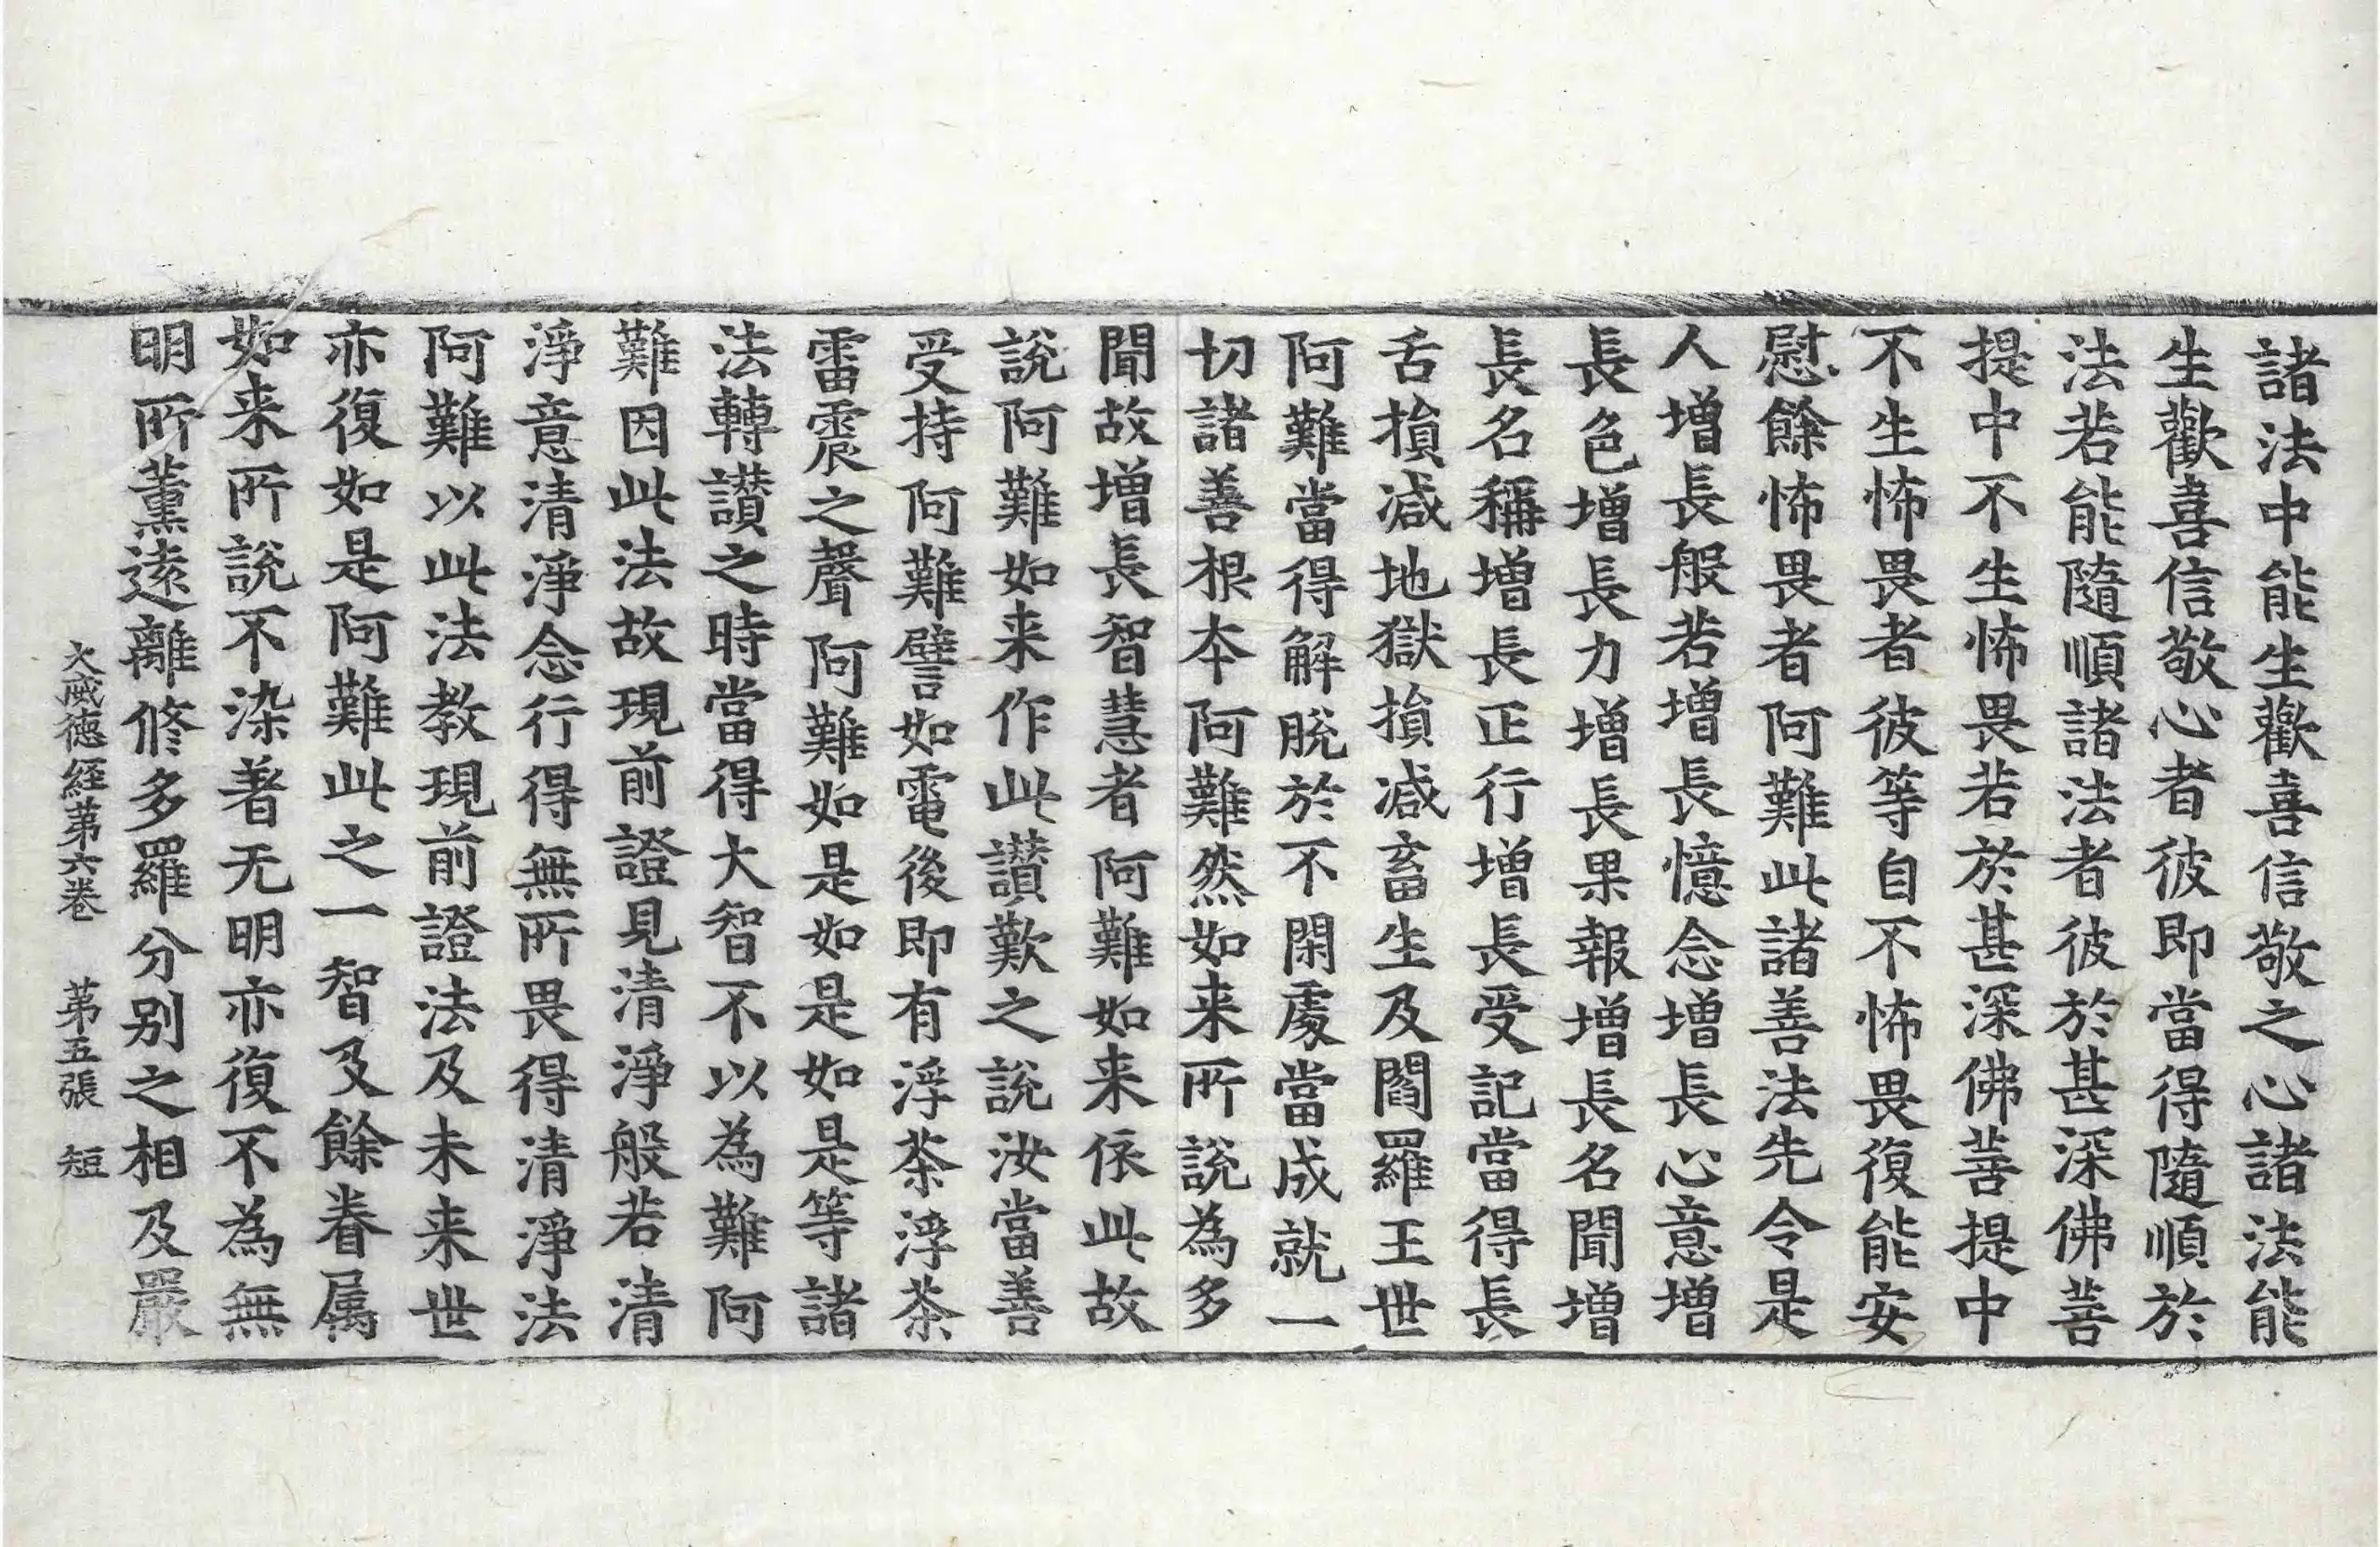 諸法中能生歡喜信敬之心諸法能
生歡喜信敬心者彼即當得隨順於
法若能隨順諸法者彼於甚深佛菩
提中不生怖畏若於甚深佛菩提中
不生怖畏者彼等自不怖畏復能安
慰餘怖畏者阿難此諸善法先令是
人增長般若增長憶念增長心意增
長色增長力增長果報增長名聞增
長名稱增長正行增長受記當得長
舌損減地獄損減畜生及閻羅王世
阿難當得解脫於不閑處當成就一
切諸善根本阿難然如来所說為多
聞故增長智慧者阿難如来依此故
說阿難如来作此讃歎之說汝當善
受持阿難譬如電後即有浮荼浮荼
雷震之聲阿難如是如是如是等諸
法轉讃之時當得大智不以為難阿
難因此法故現前證見清淨般若清
淨意清淨念行得無所畏得清淨法
阿難以此法教現前證法及未来世
亦復如是阿難此之一智及餘眷属
如来所說不染著无明亦復不為無
明所薰逺離修多羅分别之相及嚴
大威徳経第六卷　第五張　短